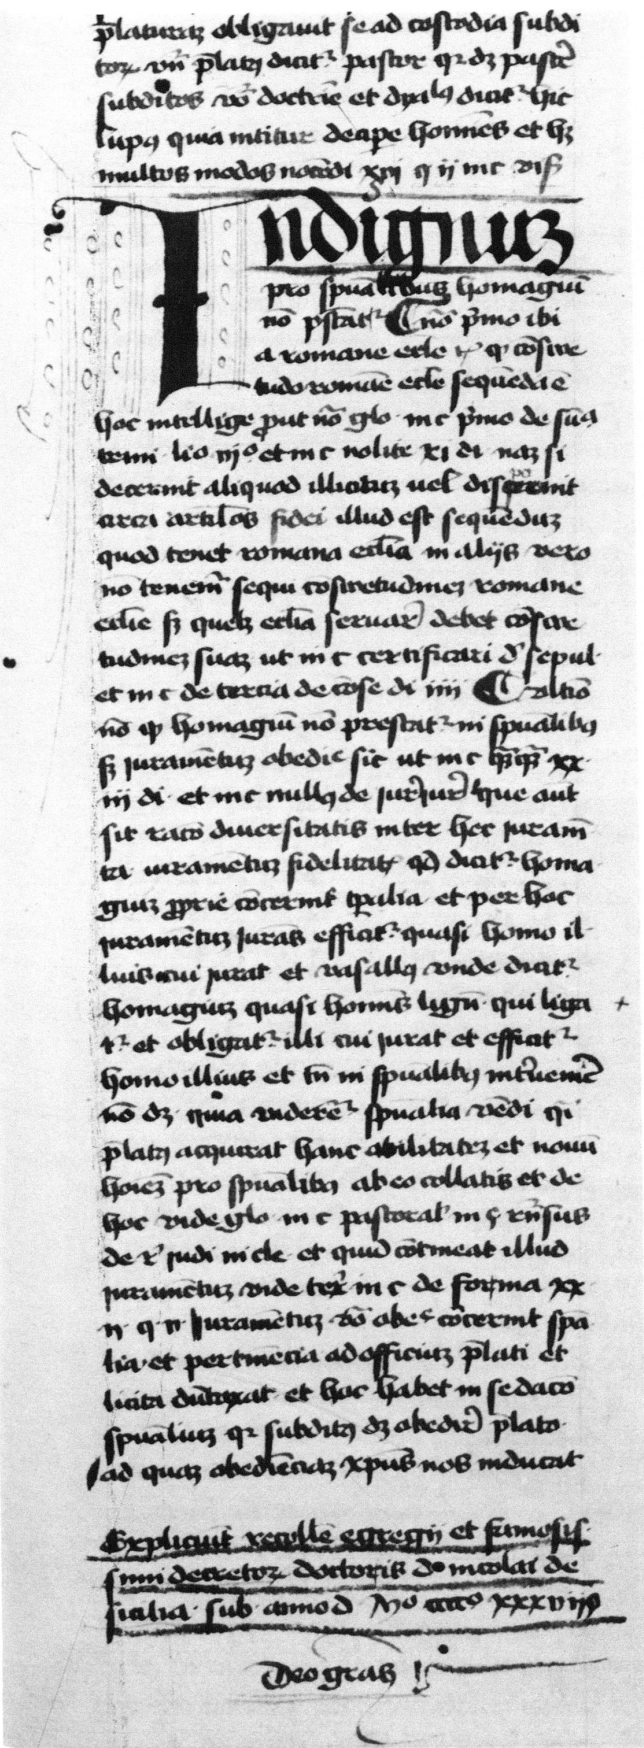 p̄laturaȝ obligauūt se ad costodiā subdi
toꝝ vn̄ p̄latꝰ dicitꝛ pastor qꝛ dȝ pasc̄e
subditos vō doctrīe et dyalꝰ dicitꝛ hic
lupꝰ quia nititur decipe homīes et hȝ
multos modos nocēdi xvj q ij in c
Indignuȝ
pro spūalibus homagiū
nō p̄statꝛ ¶ nō p̄mo ibi
a romane ecle ꝙ cōsue
tudo romāe ecle sequēda ē
hoc intellige prout nō glo in c p̄mo de sūa
trini lio vjo et in c nolite xi di naȝ si
decernit aliquod illicituȝ uel discernit
circa articlos fidei illud est sequēduȝ
quod tenet romana ecclīa in aliis vero
nō tenemꝛ sequi cōsuetudineȝ romane
eclīe sȝ quelȝ eclīa seruare debet cōsue
tudineȝ suaȝ ut in c certificari d sepul
et in c de tercia de cōse di iiii ¶
nō ꝙ homagiū nō prestatꝛ in spūalibꝰ
sȝ iuramētuȝ obediē sic ut in c qꝫqꝫ xx
iij di et in c nullꝰ de iureiur que aūt
sit racō diuersitatis inter hec iuramē
ta iuramētuȝ fidelitatis qd dicitꝛ homa
giuȝ proprie cōcernit tp̄alia et per hoc
iuramētuȝ iurās efficitꝛ quasi homo il
lius cui iurat et vasallꝰ vnde dicitꝛ
homagiuȝ quasi homīs ligiū qui liga
tꝛ et obligatꝛ illi cui iurat et efficitꝛ
homo illius et tn̄ in spūalibꝰ int̄uenire
nō dȝ quia viderēꝛ spūalia vēdi qi
p̄latꝰ acquirat hanc abilitateȝ et nouū
hoieȝ pro spūalibꝰ ab eo collatis et de
hoc vide glo in c pastoral in § rūsus
de r iudi in cle et quid cōtineat illud
iuramētuȝ vide tex in c de forma xx
ij q v Iuramētuȝ vō obeē cōcernit spūa
lia et pertinēcia ad officiuȝ p̄lati et
licita dūtaxat et hoc habet in se dacō
spūaliuȝ qꝛ subditꝰ dȝ obedire p̄lato
ad quaȝ obediēciaȝ xp̄us nos inducat
Expliciūt recollē egregij et famosis
simi decretoꝝ doctoris do nicolai de
sicilia sub anno d Mo cccco xxxviijo
Deo gras